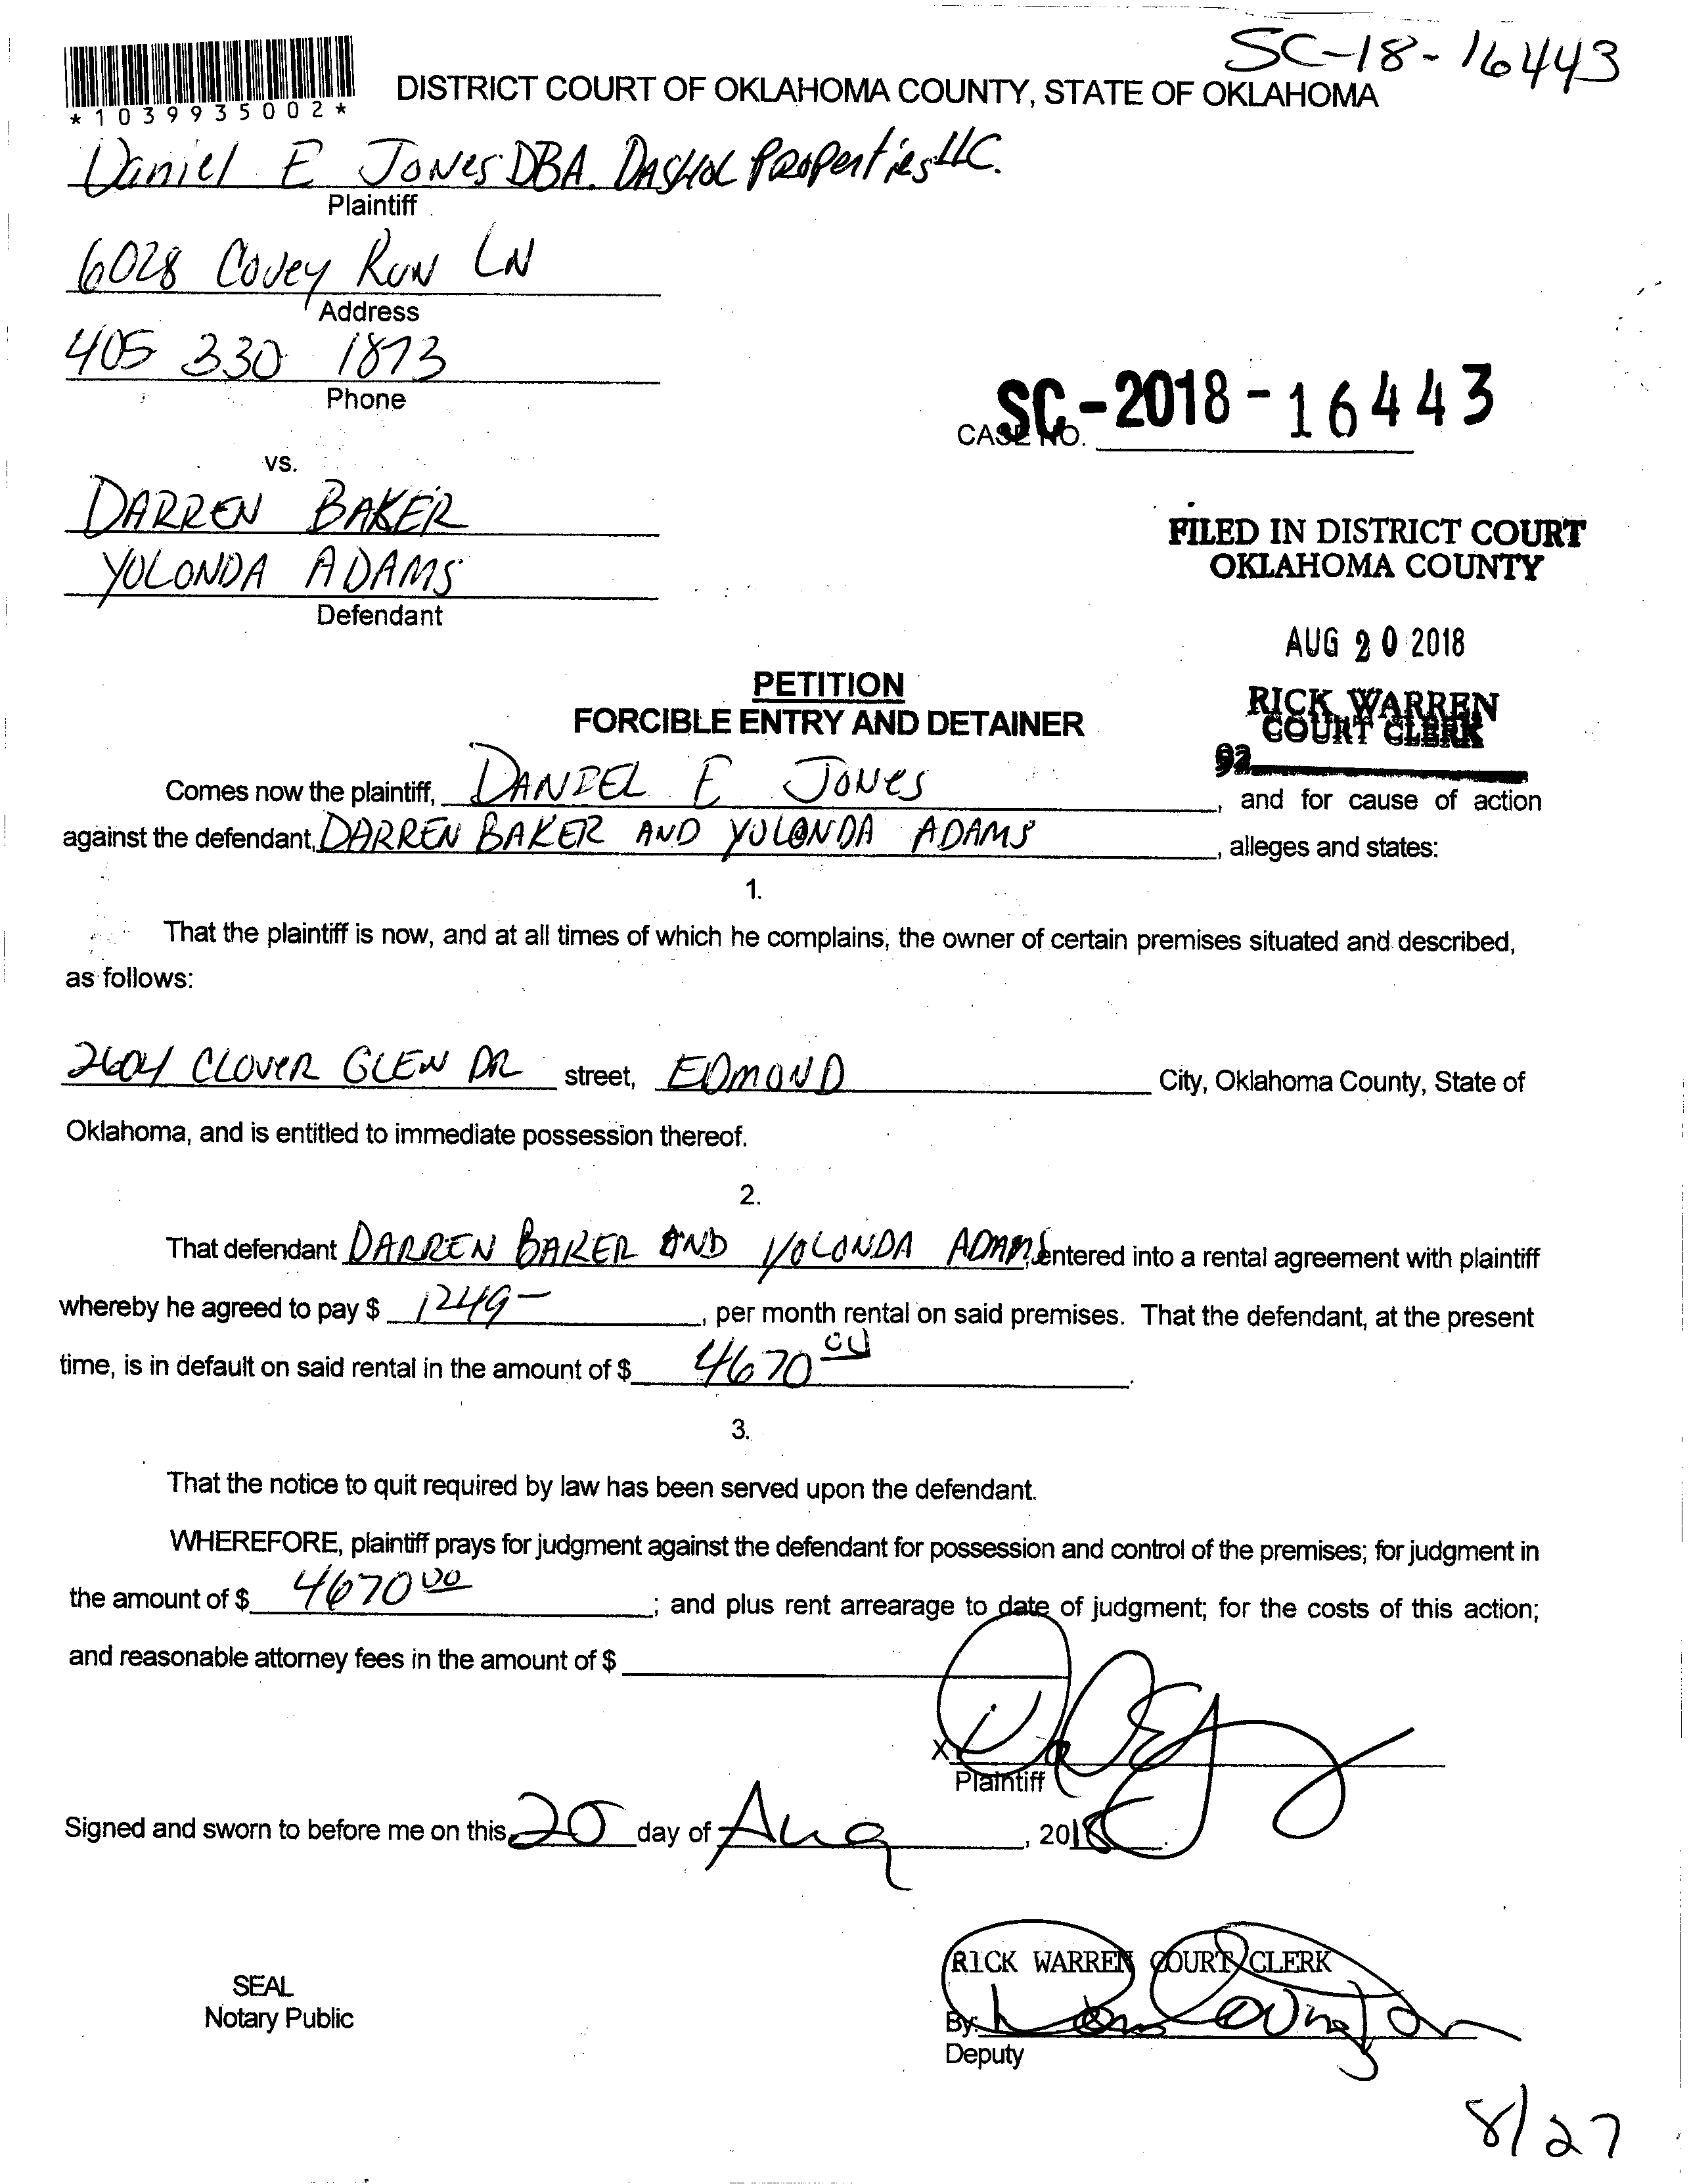 SC-18-16443
*1039935002*
DISTRICT COURT OF OKLAHOMA COUNTY, STATE OF OKLAHOMA
Daniel E Jones DBA. DASHOL PROPERTIES LLC.
Plaintiff
6028 Covey Run LN
Address
405 330 1873
Phone
CASE NO. SC-2018-16443
vs.
DARREN BAKER
YOLONDA ADAMS
Defendant
FILED IN DISTRICT COURT
OKLAHOMA COUNTY
AUG 20 2018
RICK WARREN
COURT CLERK
92
PETITION
FORCIBLE ENTRY AND DETAINER
Comes now the plaintiff, DANIEL E JONES, and for cause of action
against the defendant, DARREN BAKER AND YOLONDA ADAMS, alleges and states:
1.
That the plaintiff is now, and at all times of which he complains, the owner of certain premises situated and described,
as follows:
2604 CLOVER GLEN DR street, EDMOND City, Oklahoma County, State of
Oklahoma, and is entitled to immediate possession thereof.
2.
That defendant DARREN BAKER AND YOLONDA ADAMS, entered into a rental agreement with plaintiff
whereby he agreed to pay $ 1249-, per month rental on said premises. That the defendant, at the present
time, is in default on said rental in the amount of $ 4670 00.
3.
That the notice to quit required by law has been served upon the defendant.
WHEREFORE, plaintiff prays for judgment against the defendant for possession and control of the premises; for judgment in
the amount of $ 4670 00; and plus rent arrearage to date of judgment; for the costs of this action;
and reasonable attorney fees in the amount of $
X
Plaintiff
Signed and sworn to before me on this 20 day of Aug, 2018.
RICK WARREN COURT CLERK
SEAL
Notary Public
By:
Deputy
8/27